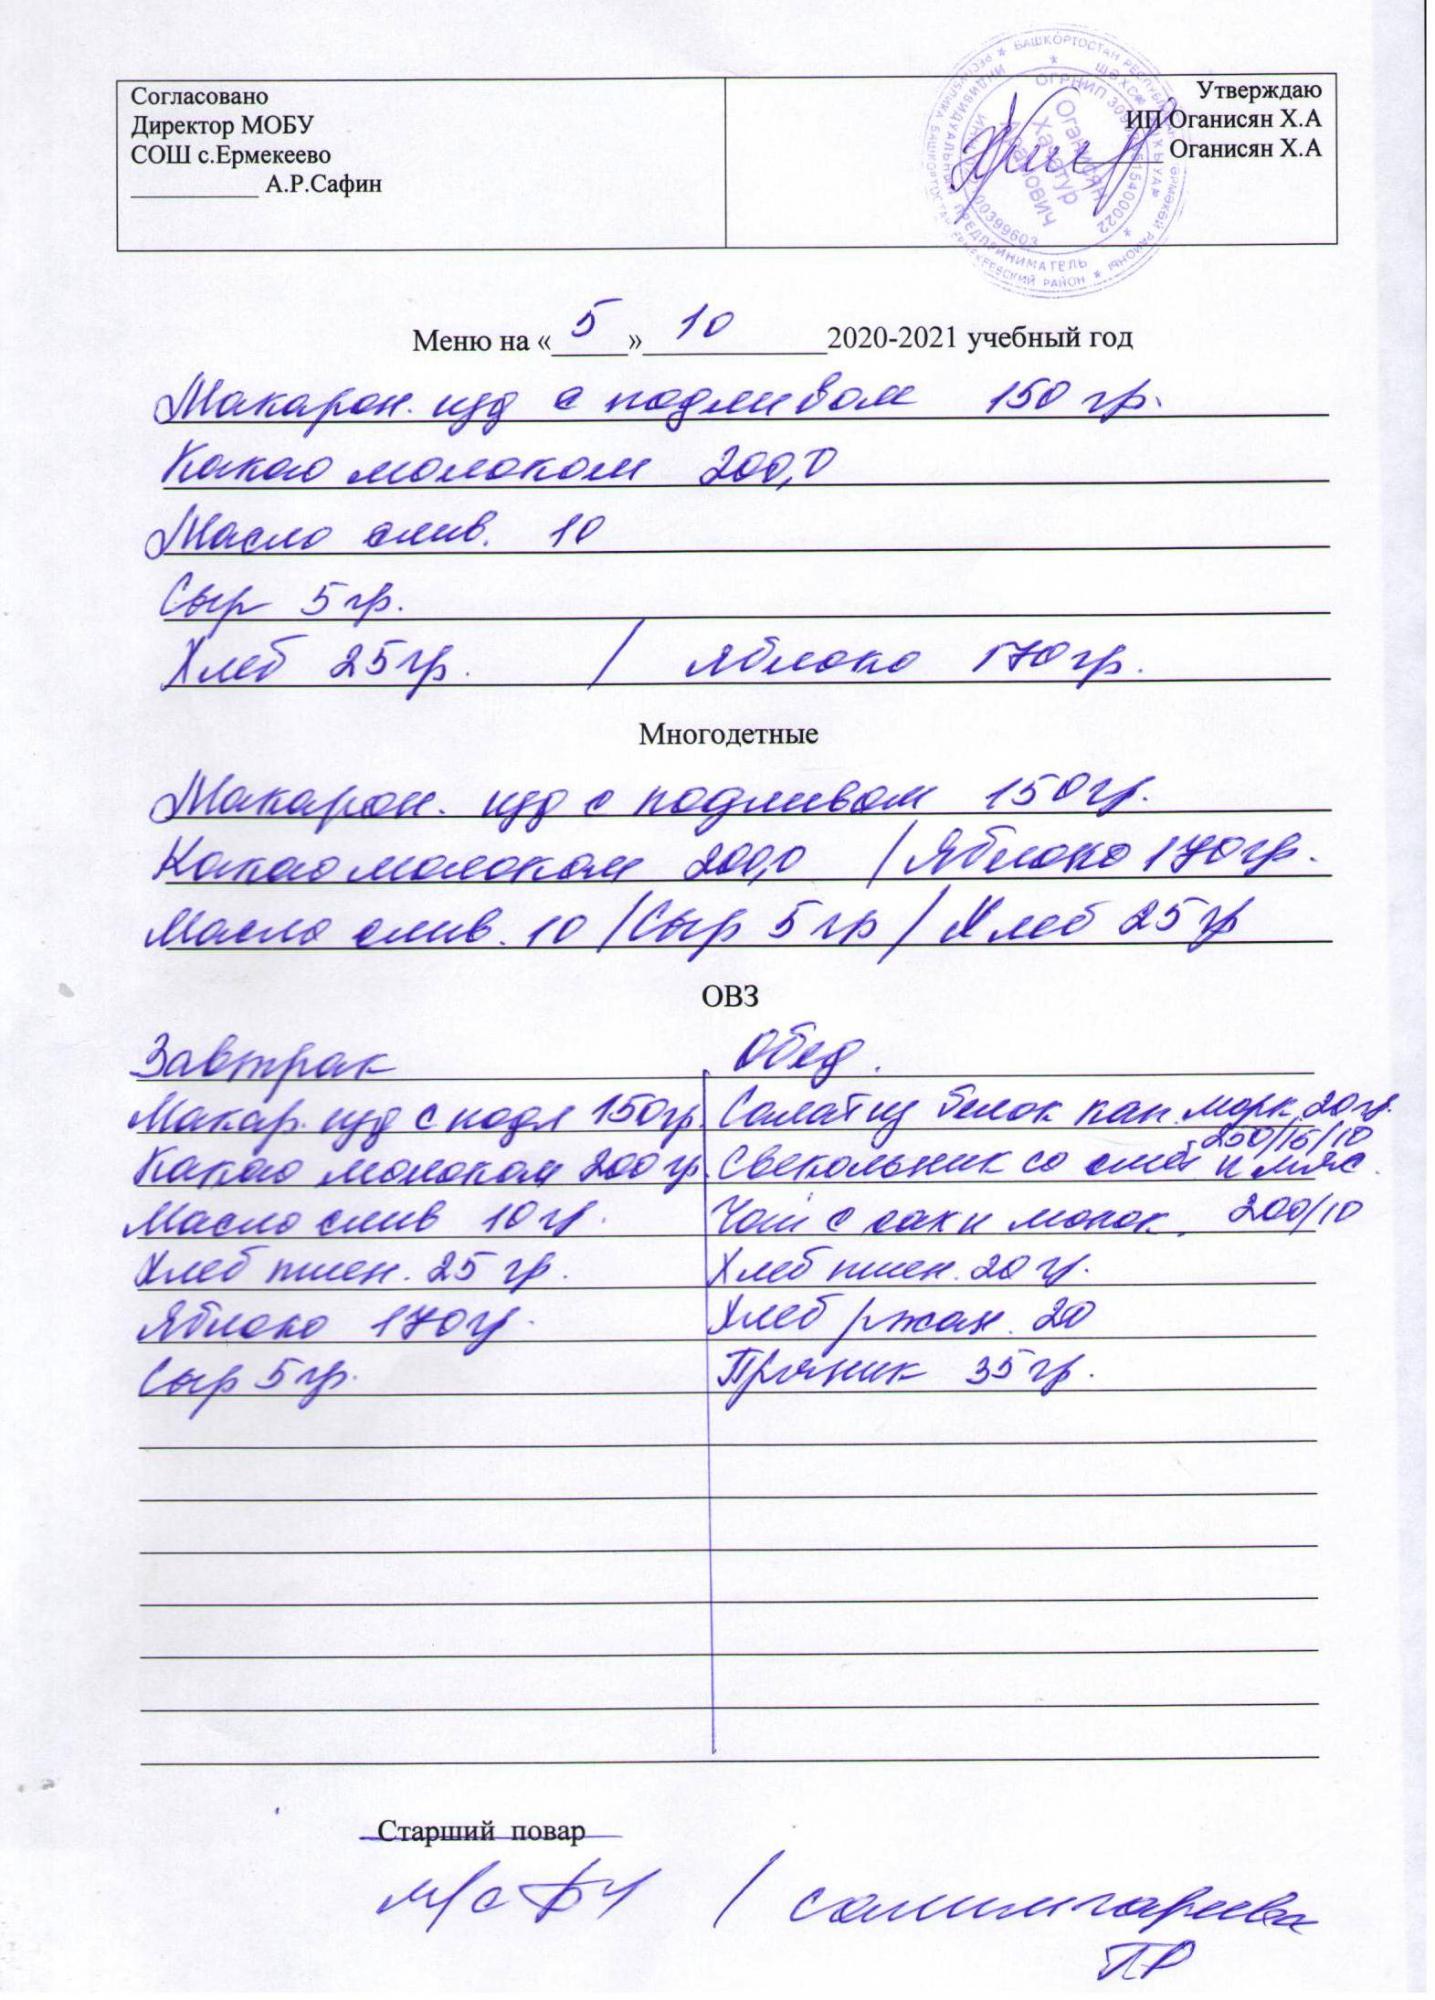 Согласовано
Директор МОБУ
СОШ с.Ермекеево
__________ А.Р.Сафин
Утверждаю
ИП Оганисян Х.А
_______ Оганисян Х.А
Меню на «5» 10 2020-2021 учебный год
Макарон. изд с подливом 150 гр.
Какао молоком 200,0
Масло слив. 10
Сыр 5 гр.
Хлеб 25 гр. / яблоко 170 гр.
Многодетные
Макарон. изд с подливом 150 гр.
Какао молоком 200,0 / Яблоко 170 гр.
Масло слив. 10 / Сыр 5 гр / Хлеб 25 гр
ОВЗ
Завтрак
Макар. изд с подл 150 гр.
Какао молоком 200 гр.
Масло слив 10 гр.
Хлеб пшен. 25 гр.
Яблоко 170 гр.
Сыр 5 гр.
Обед.
Салат из белок кап. морк. 20 гр.
Свекольник со смет и мяс. 250/15/10
Чай с сах и молок. 200/10
Хлеб пшен. 20 гр.
Хлеб ржан. 20
Пряник 35 гр.
Старший повар
м/с / Салимгареева
ГР